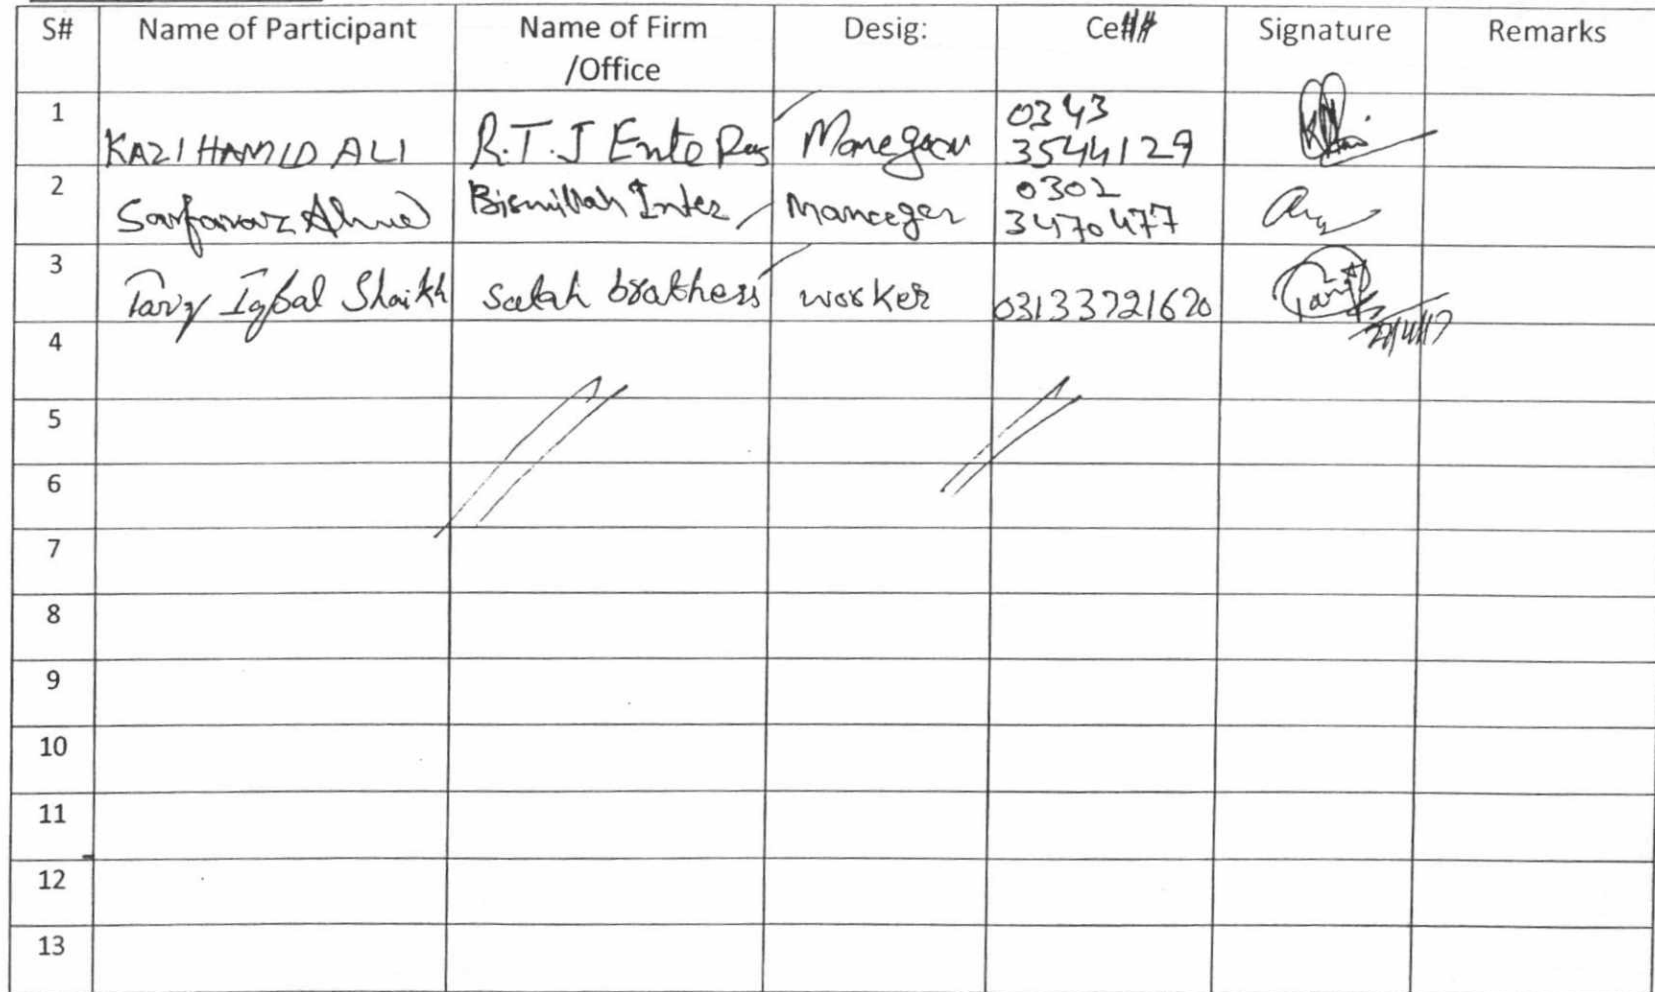 S# Name of Participant Name of Firm /Office Desig: Ce## Signature Remarks
1 KAZI HAMID ALI R.T.J Ente Pas Manegar 0343 3544129
2 Sarfaraz Ahmed Bismillah Inter Manceger 0302 3470477
3 Tariq Iqbal Shaikh Salah brothers worker 03133721620
4
5
6
7
8
9
10
11
12
13